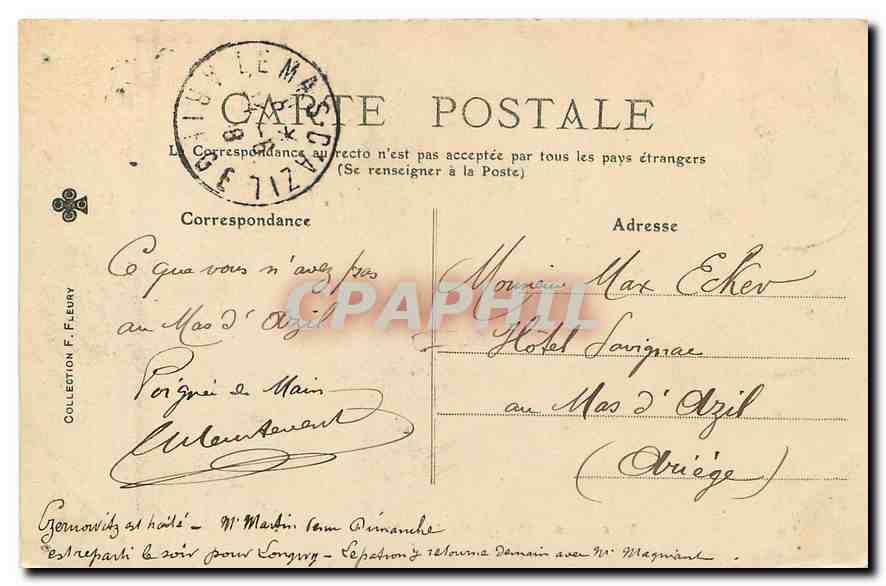 LE MAS-D'AZIL
CARTE POSTALE
La Correspondance au recto n'est pas acceptée par tous les pays étrangers
(Se renseigner à la Poste)
Correspondance
Ce que vous n'avez pas
au Mas d'Azil
Poignée de Main
Adresse
Monsieur Max Ecker
Hôtel Savignac
au Mas d'Azil
(Ariège)
CPAPHIL
COLLECTION F. FLEURY
Czernowitz est – Mr Martin venu Dimanche
est reparti le soir pour Longwy – Le patron y retourne demain avec Mr